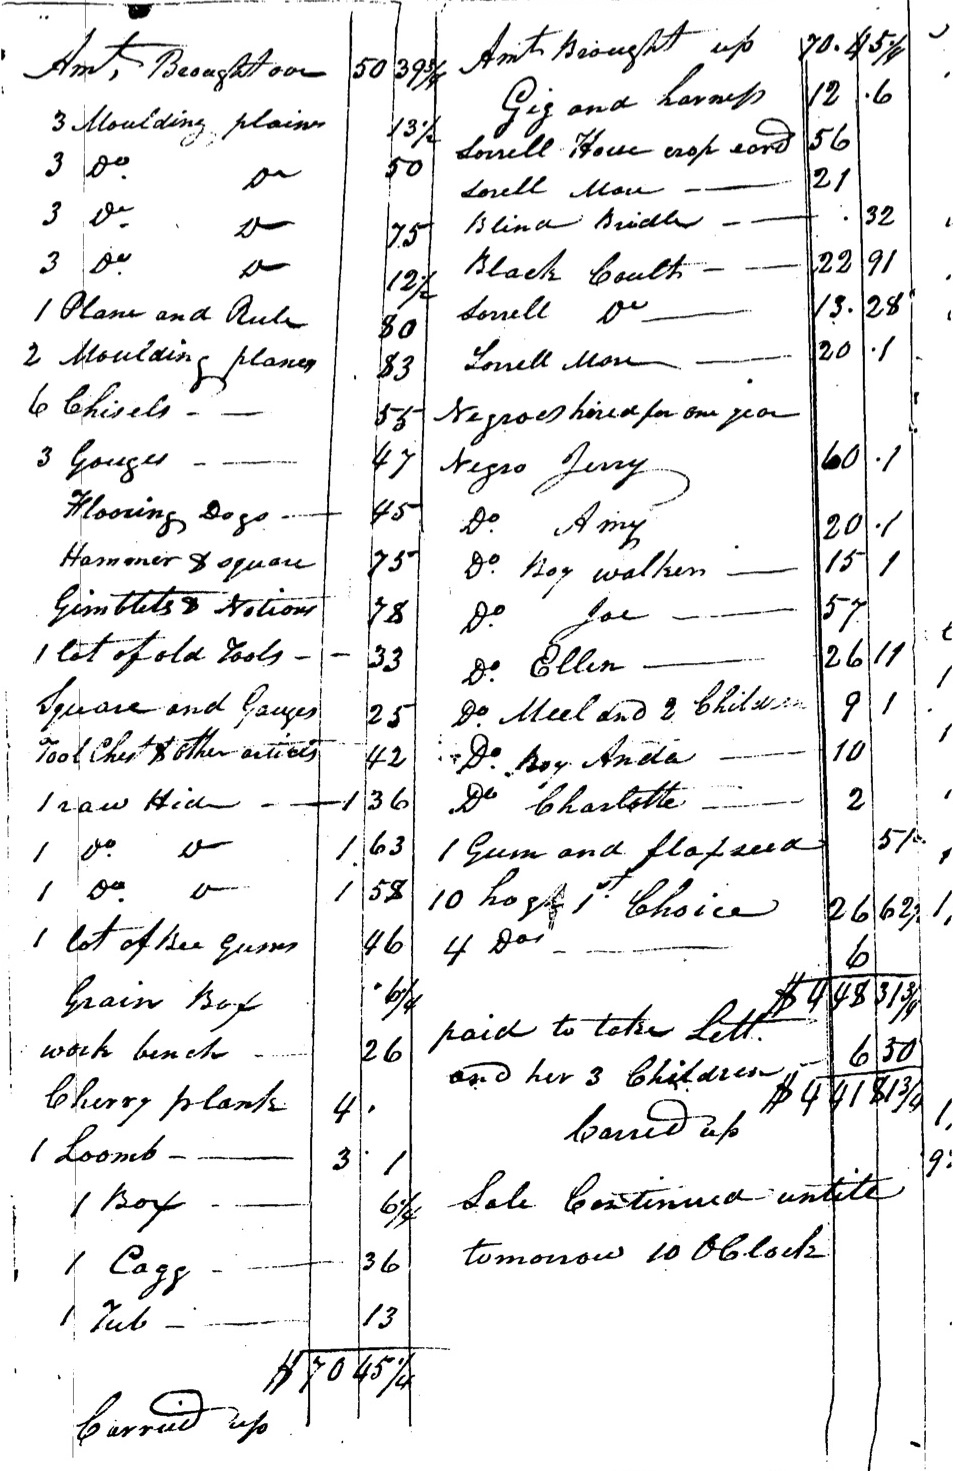 Amt, Brought over 50 39 3/4
3 Moulding plains 13 1/2
3 Do. Do 50
3 Do. Do 75
3 Do. Do 12 1/2
1 Plane and Rule 80
2 Moulding planes 83
6 Chisels - — 55
3 Gouges - — 47
Flooring Dogs - — 45
Hammer & square 75
Gimblets & Notions 78
1 lot of old Tools - - 33
Square and Gauges 25
Tool Chest & other articles 42
1 raw Hide - — 1 36
1 Do. Do 1. 63
1 Do. Do 1 58
1 lot of Bee Gums 46
Grain Box . 6 1/4
work bench - — 26
Cherry plank 4 .
1 Loomb - — 3 . 1
1 Box - — 6 1/4
1 Cagg - — 36
1 Tub - — 13
$ 70 45 1/4
Carried up
Amt Brought up 70. 45 1/4
Gig and harness 12 .6
Sorrell Horse crop eard 56
Sorell Mare — 21
Blind Bridle - — . 32
Black Coult - — 22 91
Sorrell Do — 13. 28
Sorrell Mare — 20 .1
Negroes hired for one year
Negro Jerry 60 .1
Do. Amy 20 .1
Do. Boy walker — 15 1
Do. Joe — 57
Do. Ellen — 26 11
Do. Meel and 2 Children 9 1
Do. Boy Anda — 10
Do Charlotte — 2
1 Gum and flaxseed 51
10 hogs 1st Choice 26 62
4 Dos - — 6
$ 4 48 31 3/4
paid to take Lett.
and her 3 Children - 6 50
$ 4 41 81 3/4
Carred up
Sale Continued untile
tomorrow 10 OClock